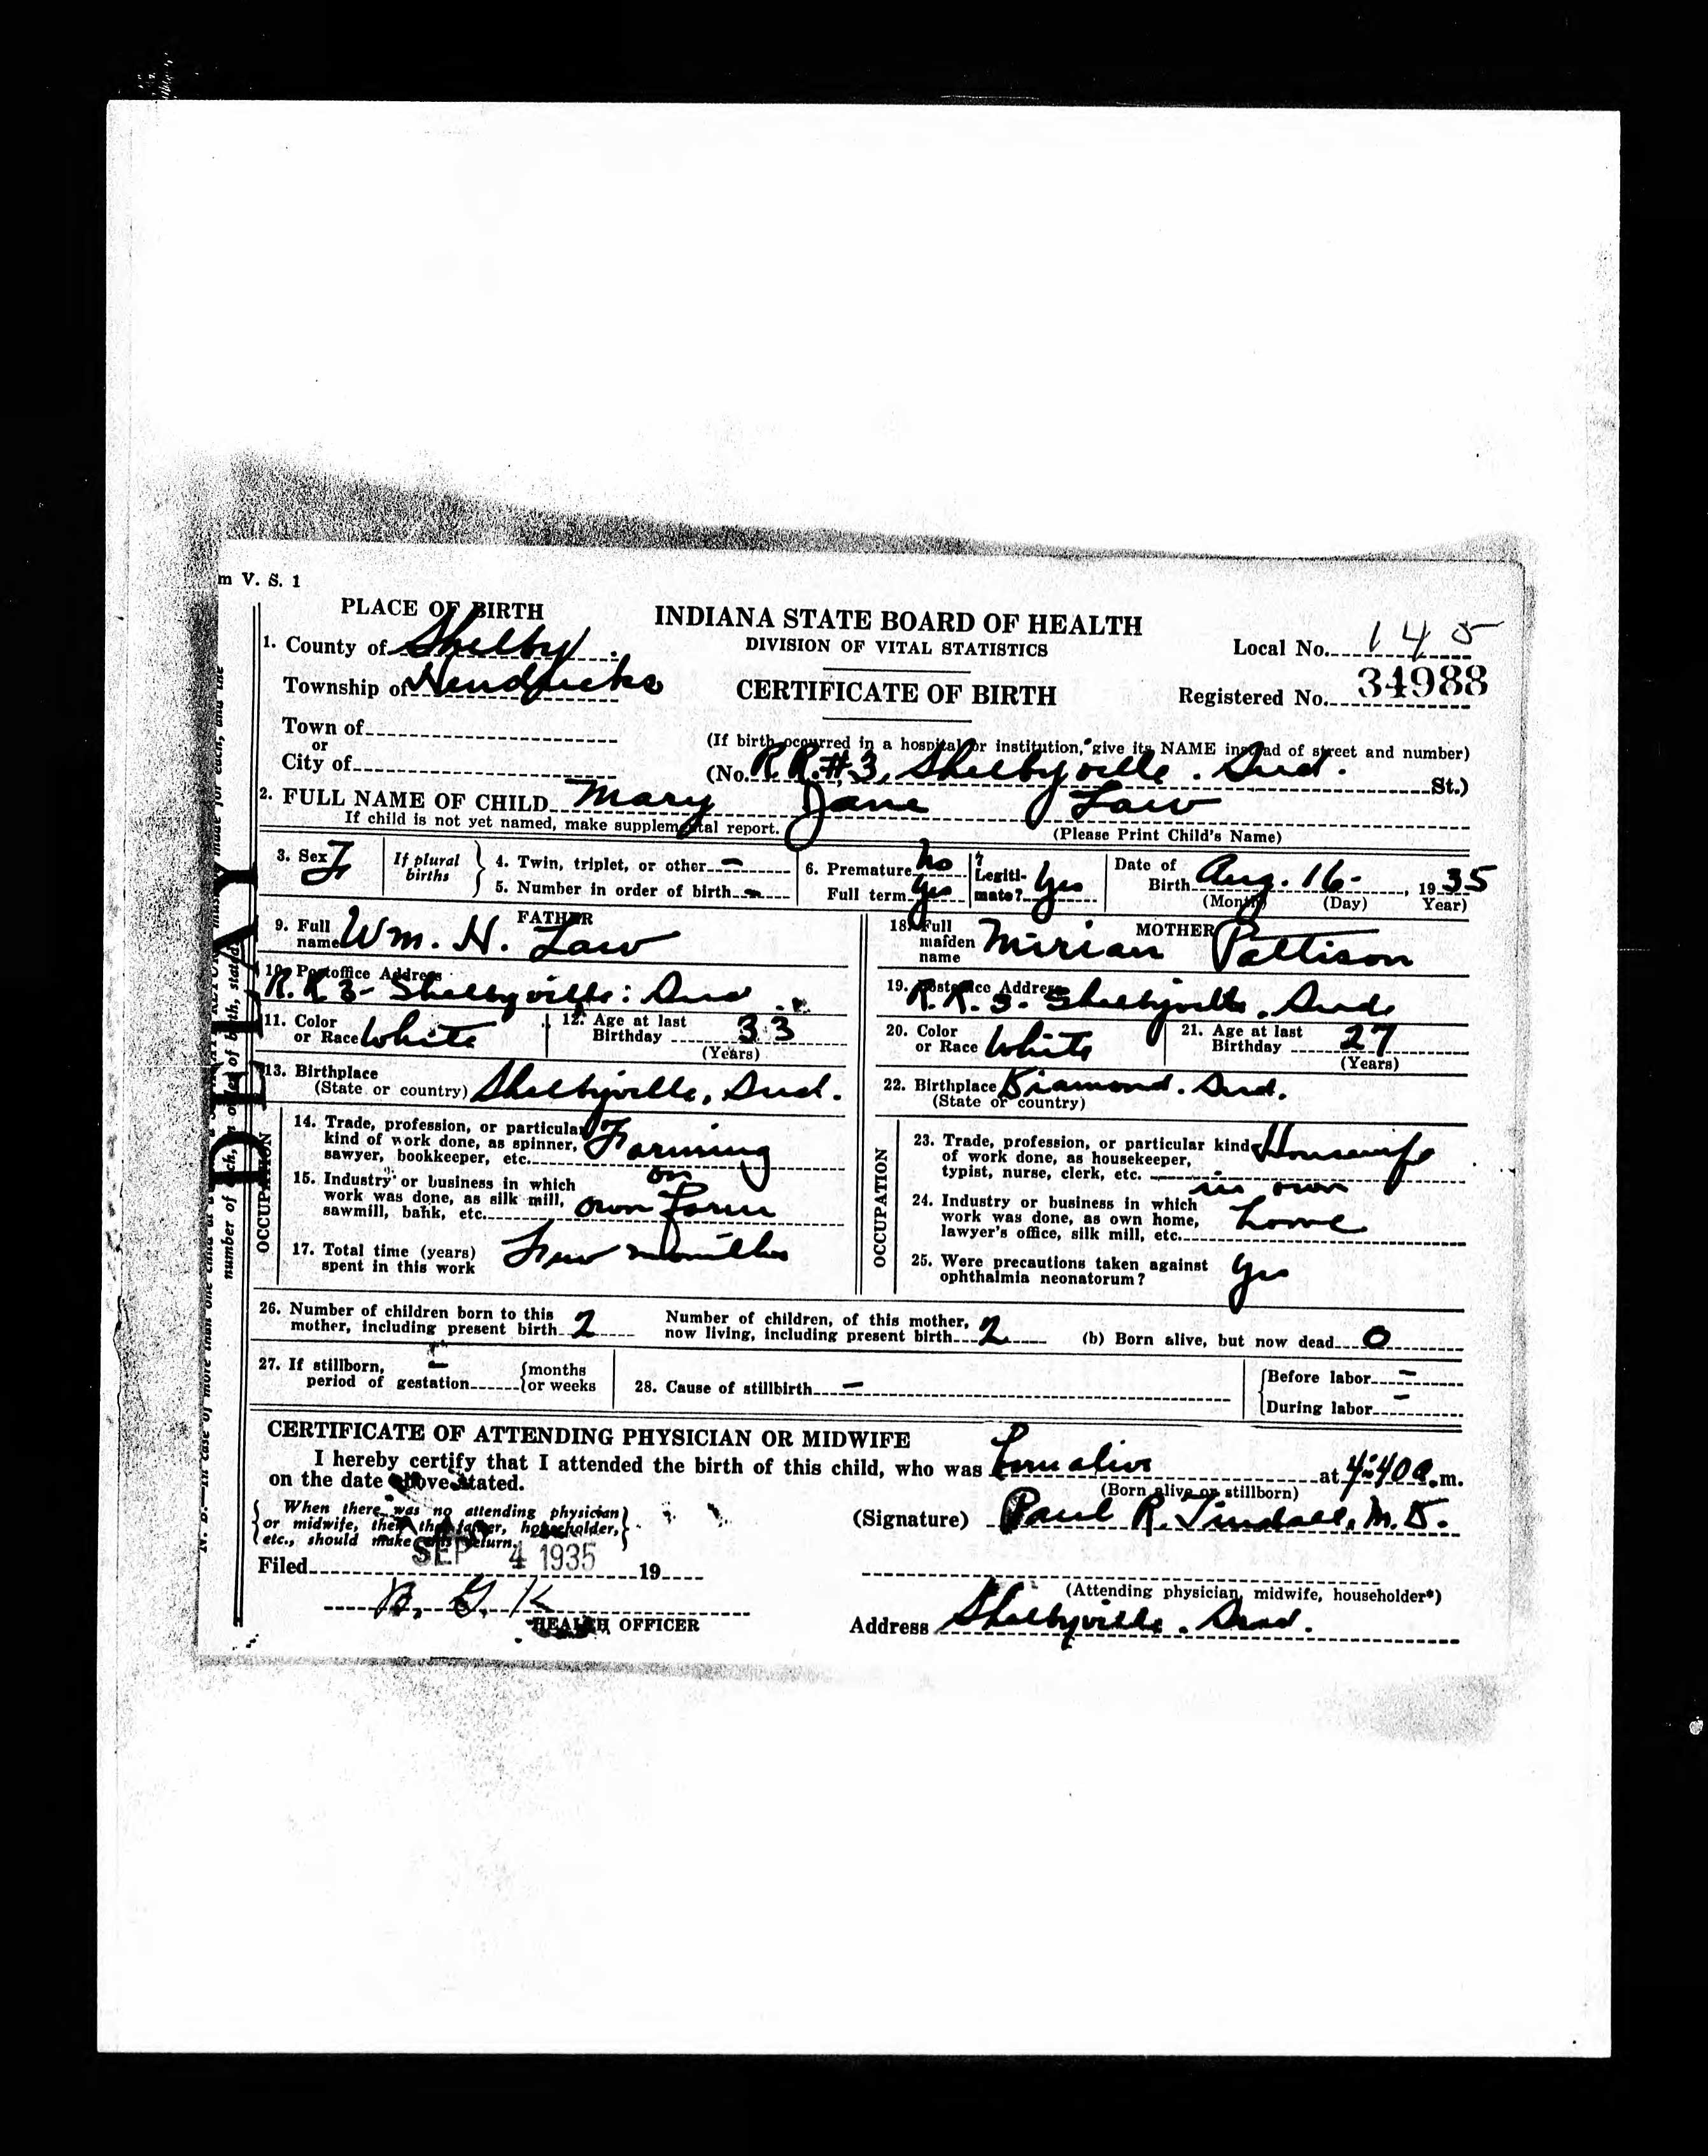 m V. S. 1
PLACE OF BIRTH
INDIANA STATE BOARD OF HEALTH
DIVISION OF VITAL STATISTICS
CERTIFICATE OF BIRTH
Local No. 145
Registered No. 34988
1. County of Shelby
Township of Hendricks
Town of
or
City of
(If birth occurred in a hospital or institution, give its NAME instead of street and number)
(No. R.R.#3, Shelbyville. Ind. St.)
2. FULL NAME OF CHILD Mary Jane Law
If child is not yet named, make supplemental report.
(Please Print Child's Name)
3. Sex F
If plural births
4. Twin, triplet, or other –
5. Number in order of birth –
6. Premature No
Full term Yes
7 Legiti-mate? Yes
Date of Birth Aug. 16- , 1935
(Month) (Day) Year)
FATHER
9. Full name Wm. H. Law
10. Postoffice Address
R.R 3- Shelbyville: Ind
11. Color or Race White
12. Age at last Birthday 33
(Years)
13. Birthplace
(State or country) Shelbyville, Ind.
OCCUPATION
14. Trade, profession, or particular
kind of work done, as spinner,
sawyer, bookkeeper, etc. Farming
15. Industry or business in which
work was done, as silk mill,
sawmill, bank, etc. on own farm
17. Total time (years)
spent in this work Few months
MOTHER
18. Full maiden name Mirian Pattison
19. Postoffice Address
R.R. 3. Shelbyville. Ind
20. Color or Race White
21. Age at last Birthday 27
(Years)
22. Birthplace Diamond. Ind.
(State or country)
OCCUPATION
23. Trade, profession, or particular kind
of work done, as housekeeper,
typist, nurse, clerk, etc. Housewife
24. Industry or business in which
work was done, as own home,
lawyer's office, silk mill, etc. in own home
25. Were precautions taken against
ophthalmia neonatorum? Yes
26. Number of children born to this
mother, including present birth 2
Number of children, of this mother,
now living, including present birth 2
(b) Born alive, but now dead 0
27. If stillborn,
period of gestation – {months
{or weeks
28. Cause of stillbirth –
{Before labor –
{During labor –
CERTIFICATE OF ATTENDING PHYSICIAN OR MIDWIFE
I hereby certify that I attended the birth of this child, who was Born alive at 4:40 a.m.
on the date above stated.
(Born alive or stillborn)
{When there was no attending physician
or midwife, then the father, householder,
etc., should make this return.}
(Signature) Paul R. Tindall, M.D.
Filed SEP 4 1935 19
(Attending physician, midwife, householder*)
B. G. K
HEALTH OFFICER
Address Shelbyville. Ind.
N. B.—In case of more than one child at a
number of each, in order of birth, stated
made for each, and the